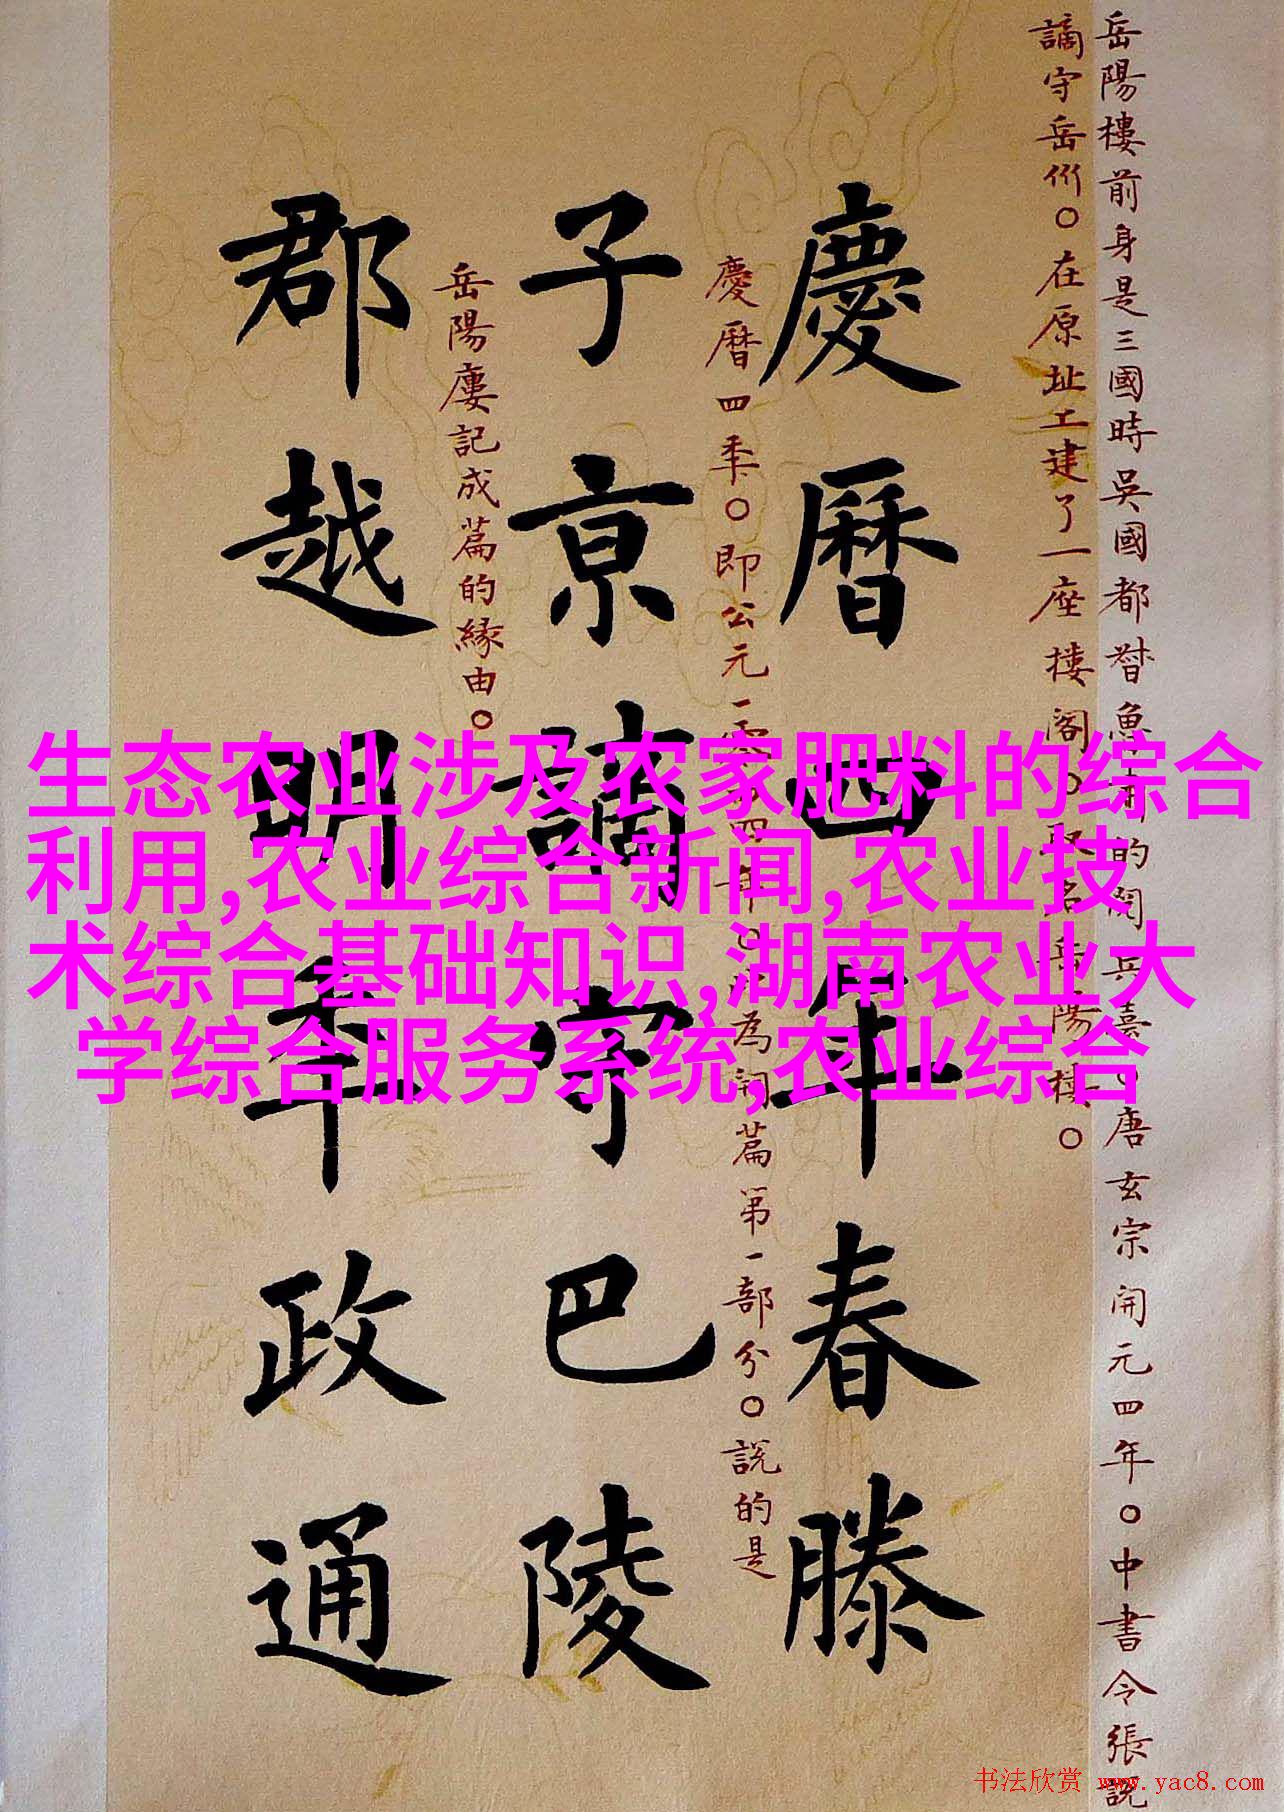 岳陽樓前身是三國時吳國都督魯肅的閱兵臺〇唐玄宗開元四年〇中書令張說
謫守岳州〇在原址工建了一座樓阁〇取名岳陽樓〇
慶曆四年春滕
慶曆四年〇即公元一零四四年〇此為開篇第一部分〇說的是
子京謫守巴陵
岳陽廔記成篇的緣由〇
郡越明年政通
生态农业涉及农家肥料的综合
利用,农业综合新闻,农业技
术综合基础知识,湖南农业大
学综合服务系统,农业综合
书法欣赏 www.yac8.com